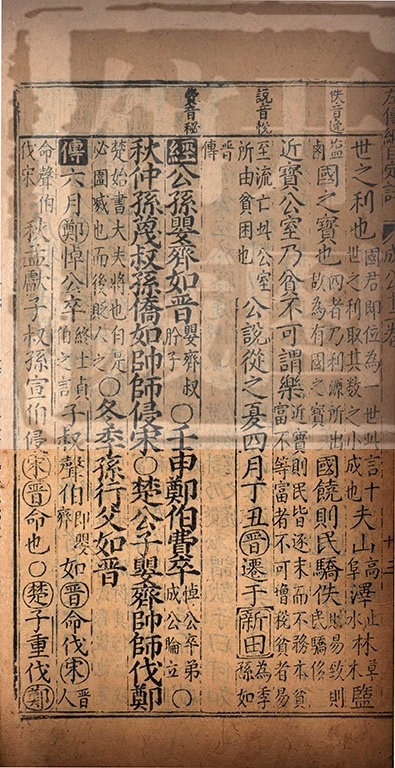 左傳綱目定註 成公上卷 廿三
佚音逸
世之利也國君即位為一世此言十世之利取其數之小成也夫山高阜澤止水林草木鹽
塩鹵國之寶也兩者乃利源所出故為有國之寶國饒則民驕佚財易致則民驕侈
近寶公室乃貧不可謂樂近寶則民皆逐末而不務本貧富不等富者不可增稅貧者易
說音悅
至流亡此公室所由貧困也公說從之夏四月丁丑晉遷于新田為季孫如
晉傳
費音秘
經公孫嬰齊如晉嬰齊叔肸子○壬申鄭伯費卒悼公卒弟成公睔立○
秋仲孫蔑叔孫僑如帥師侵宋○楚公子嬰齊帥師伐鄭
楚始書大夫將也自是必圍滅也而後貶人之○冬季孫行父如晉
傳六月鄭悼公卒終士貞伯之言子叔聲伯即嬰齊如晉命伐宋晉人
命聲伯伐宋秋孟獻子叔孫宣伯侵宋晉命也○楚子重伐鄭